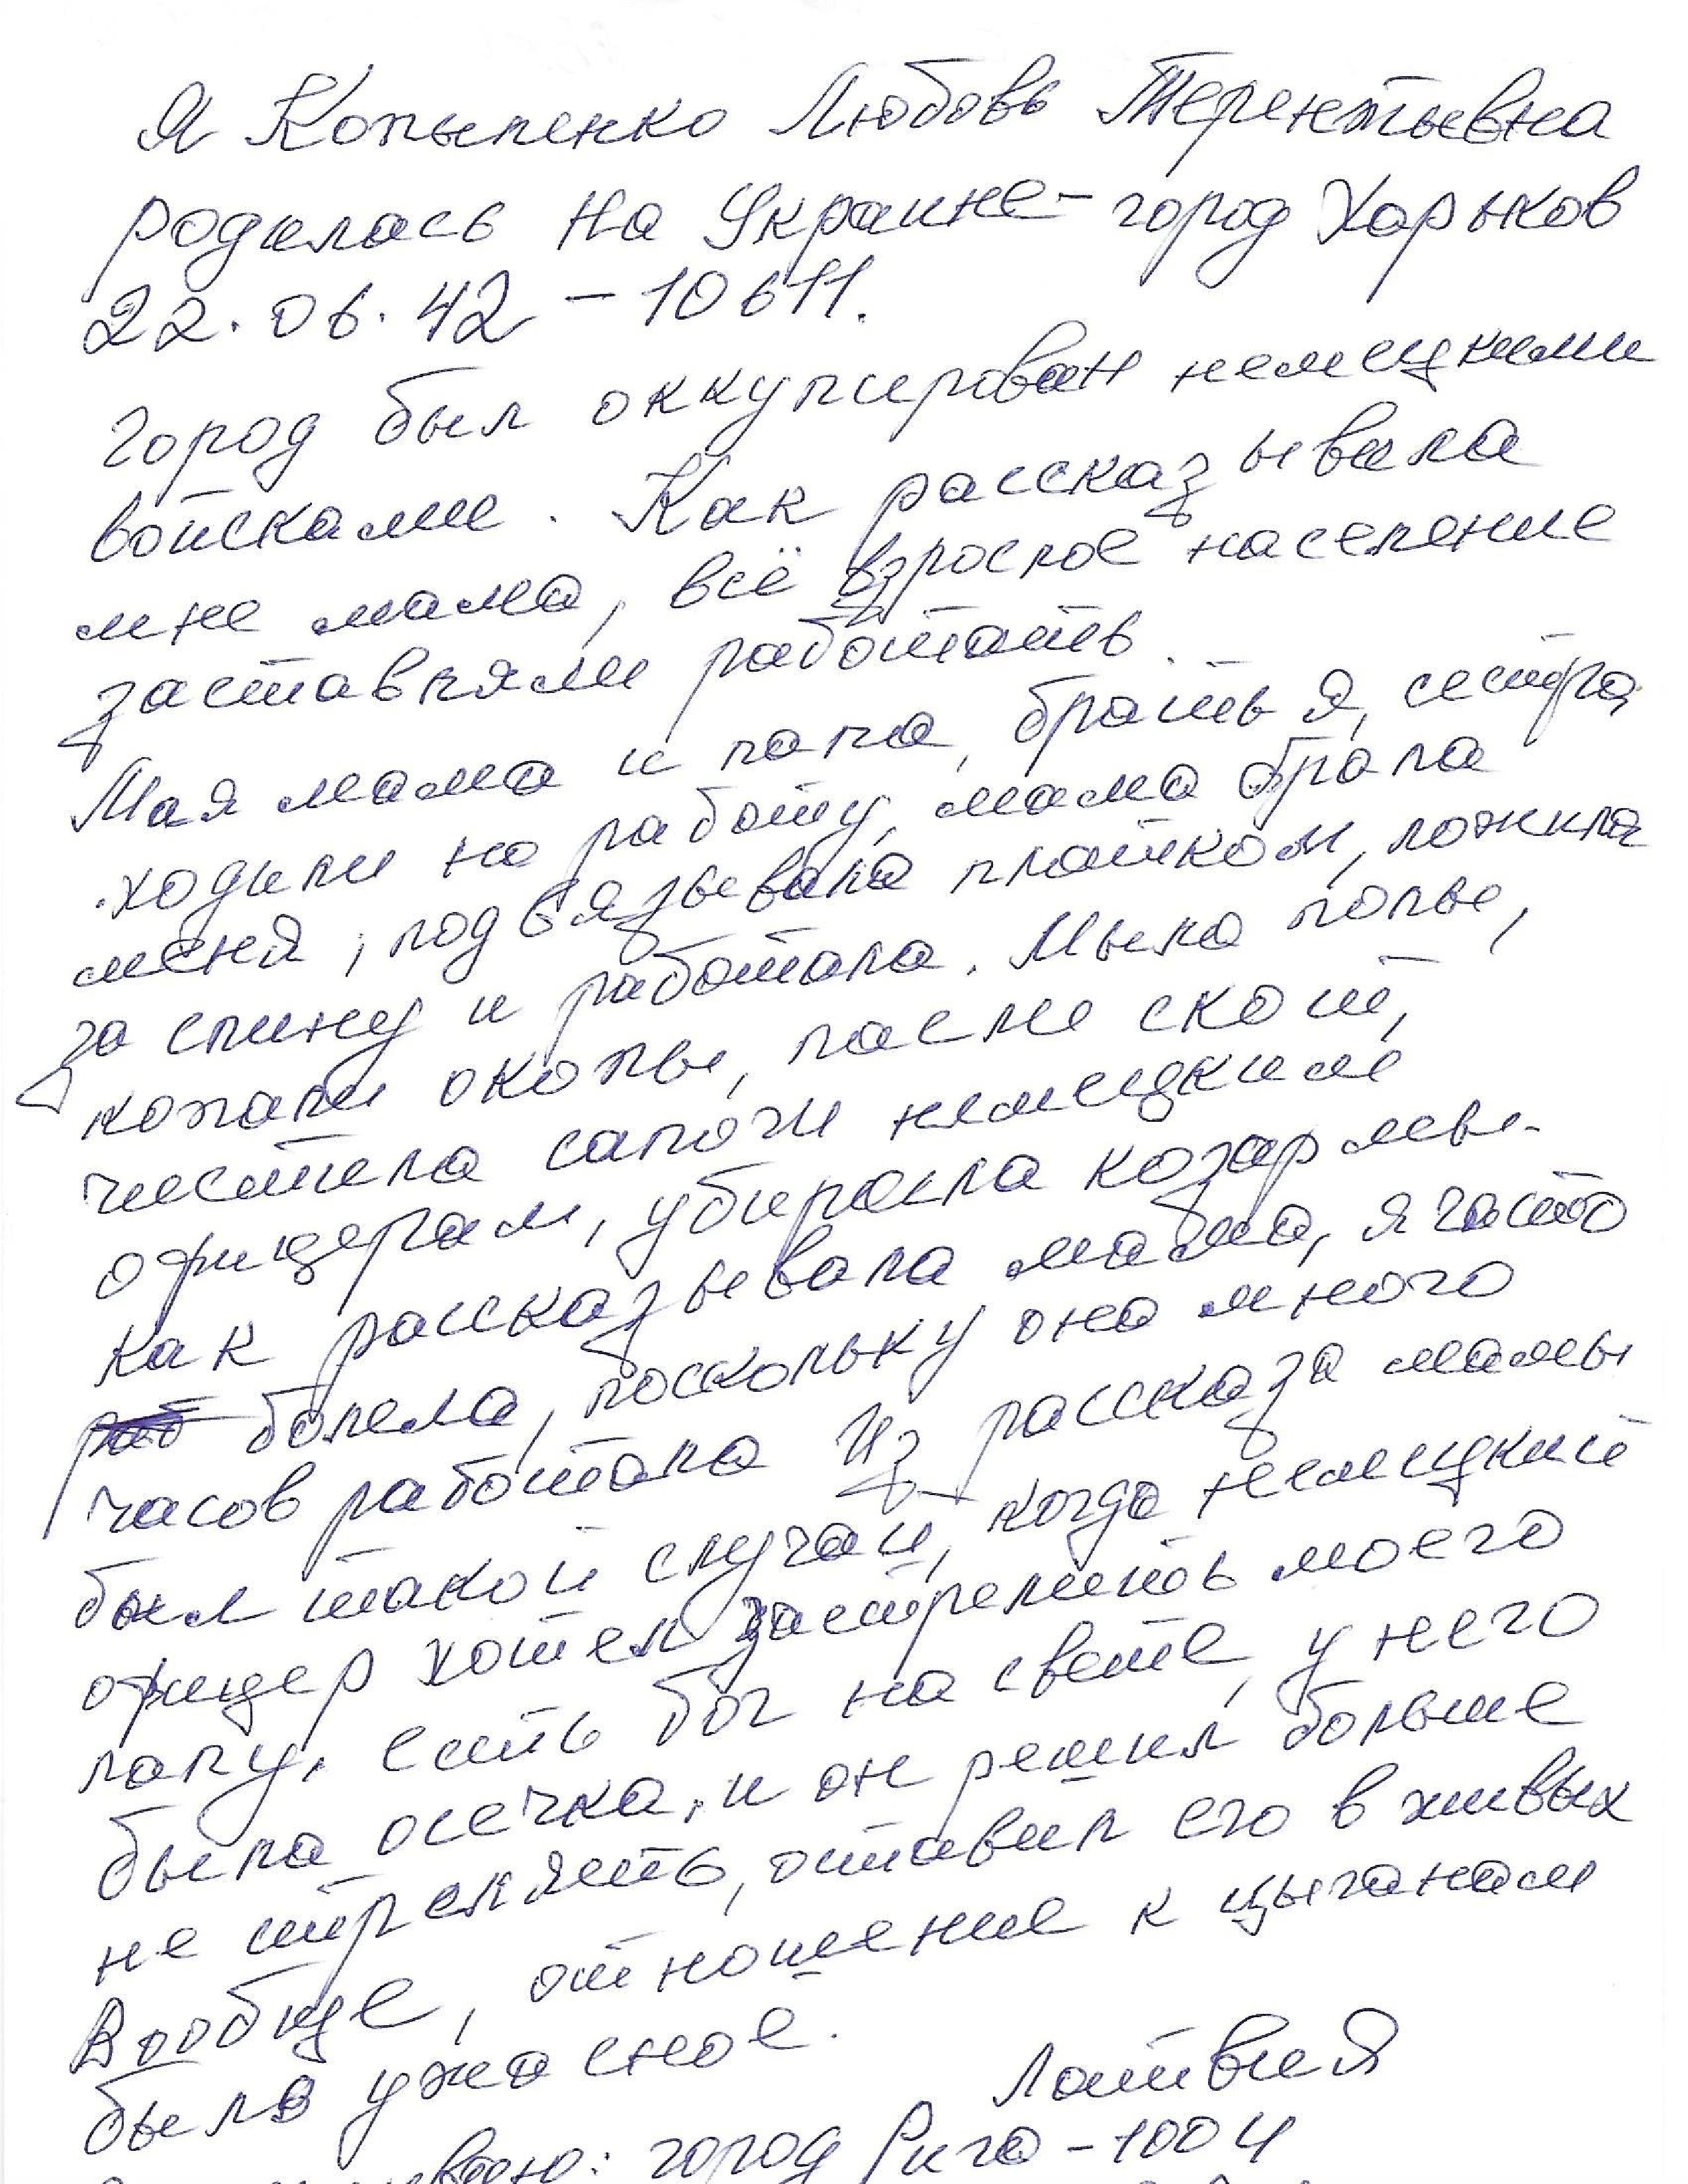 Я Копыленко Любовь Терентьевна
родилась на Украине - город Харьков
22.06.42 - 10611.
город был оккупирован немецкими
войсками. Как рассказывала
мне мама, всё взрослое население
заставляли работать.
Мая мама и папа, братья, сестра,
ходили на работу, мама брала
меня, подвязывала платком, ложила
за спину и работала. Мыла полы,
копали окопы, пасли скот,
чистила сапоги немецким
офицерам, убирала козармы.
Как рассказывала мама, я часто
болела, поскольку она много
часов работала Из рассказа мамы
был такой случай, когда немецкий
офицер хотел застрелить моего
папу, есть бог на свете, у него
была осечка, и он решил больше
не стрелять, оставил его в живых
Вообще, отношение к цыганам
было ужасное.
Латвия
город Рига - 1004